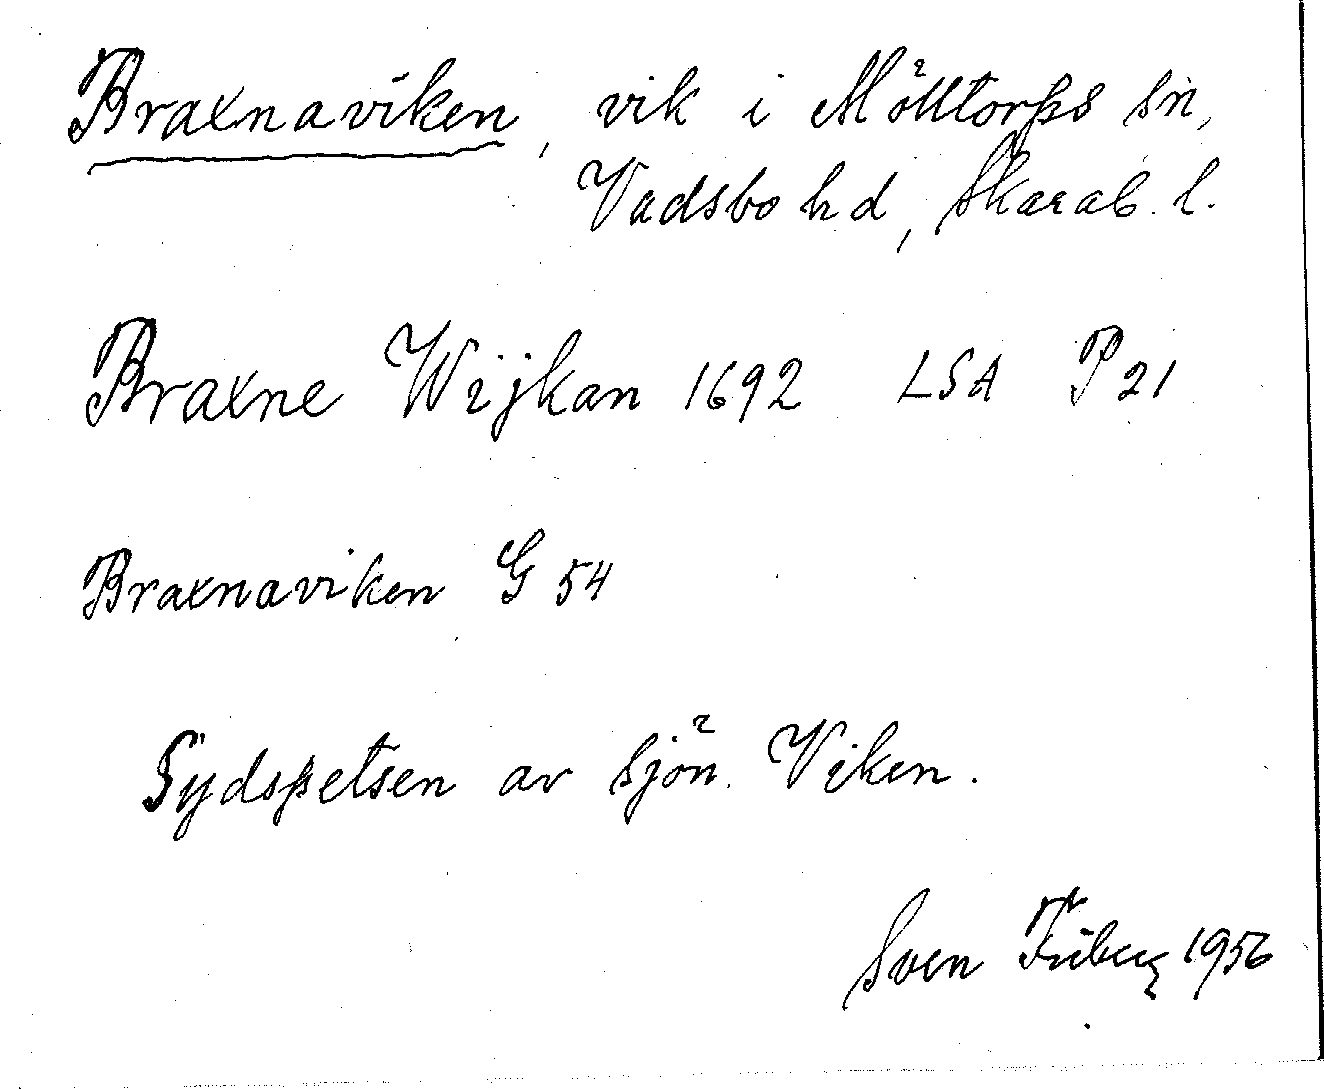 Braxnaviken, vik i Mölltorps sn,
Vadsbo hd, Skarab. l.
Braxne Wijkan 1692 LSA P21
Braxnaviken G 54
Sydspetsen av sjön Viken.
Sven Friberg 1956